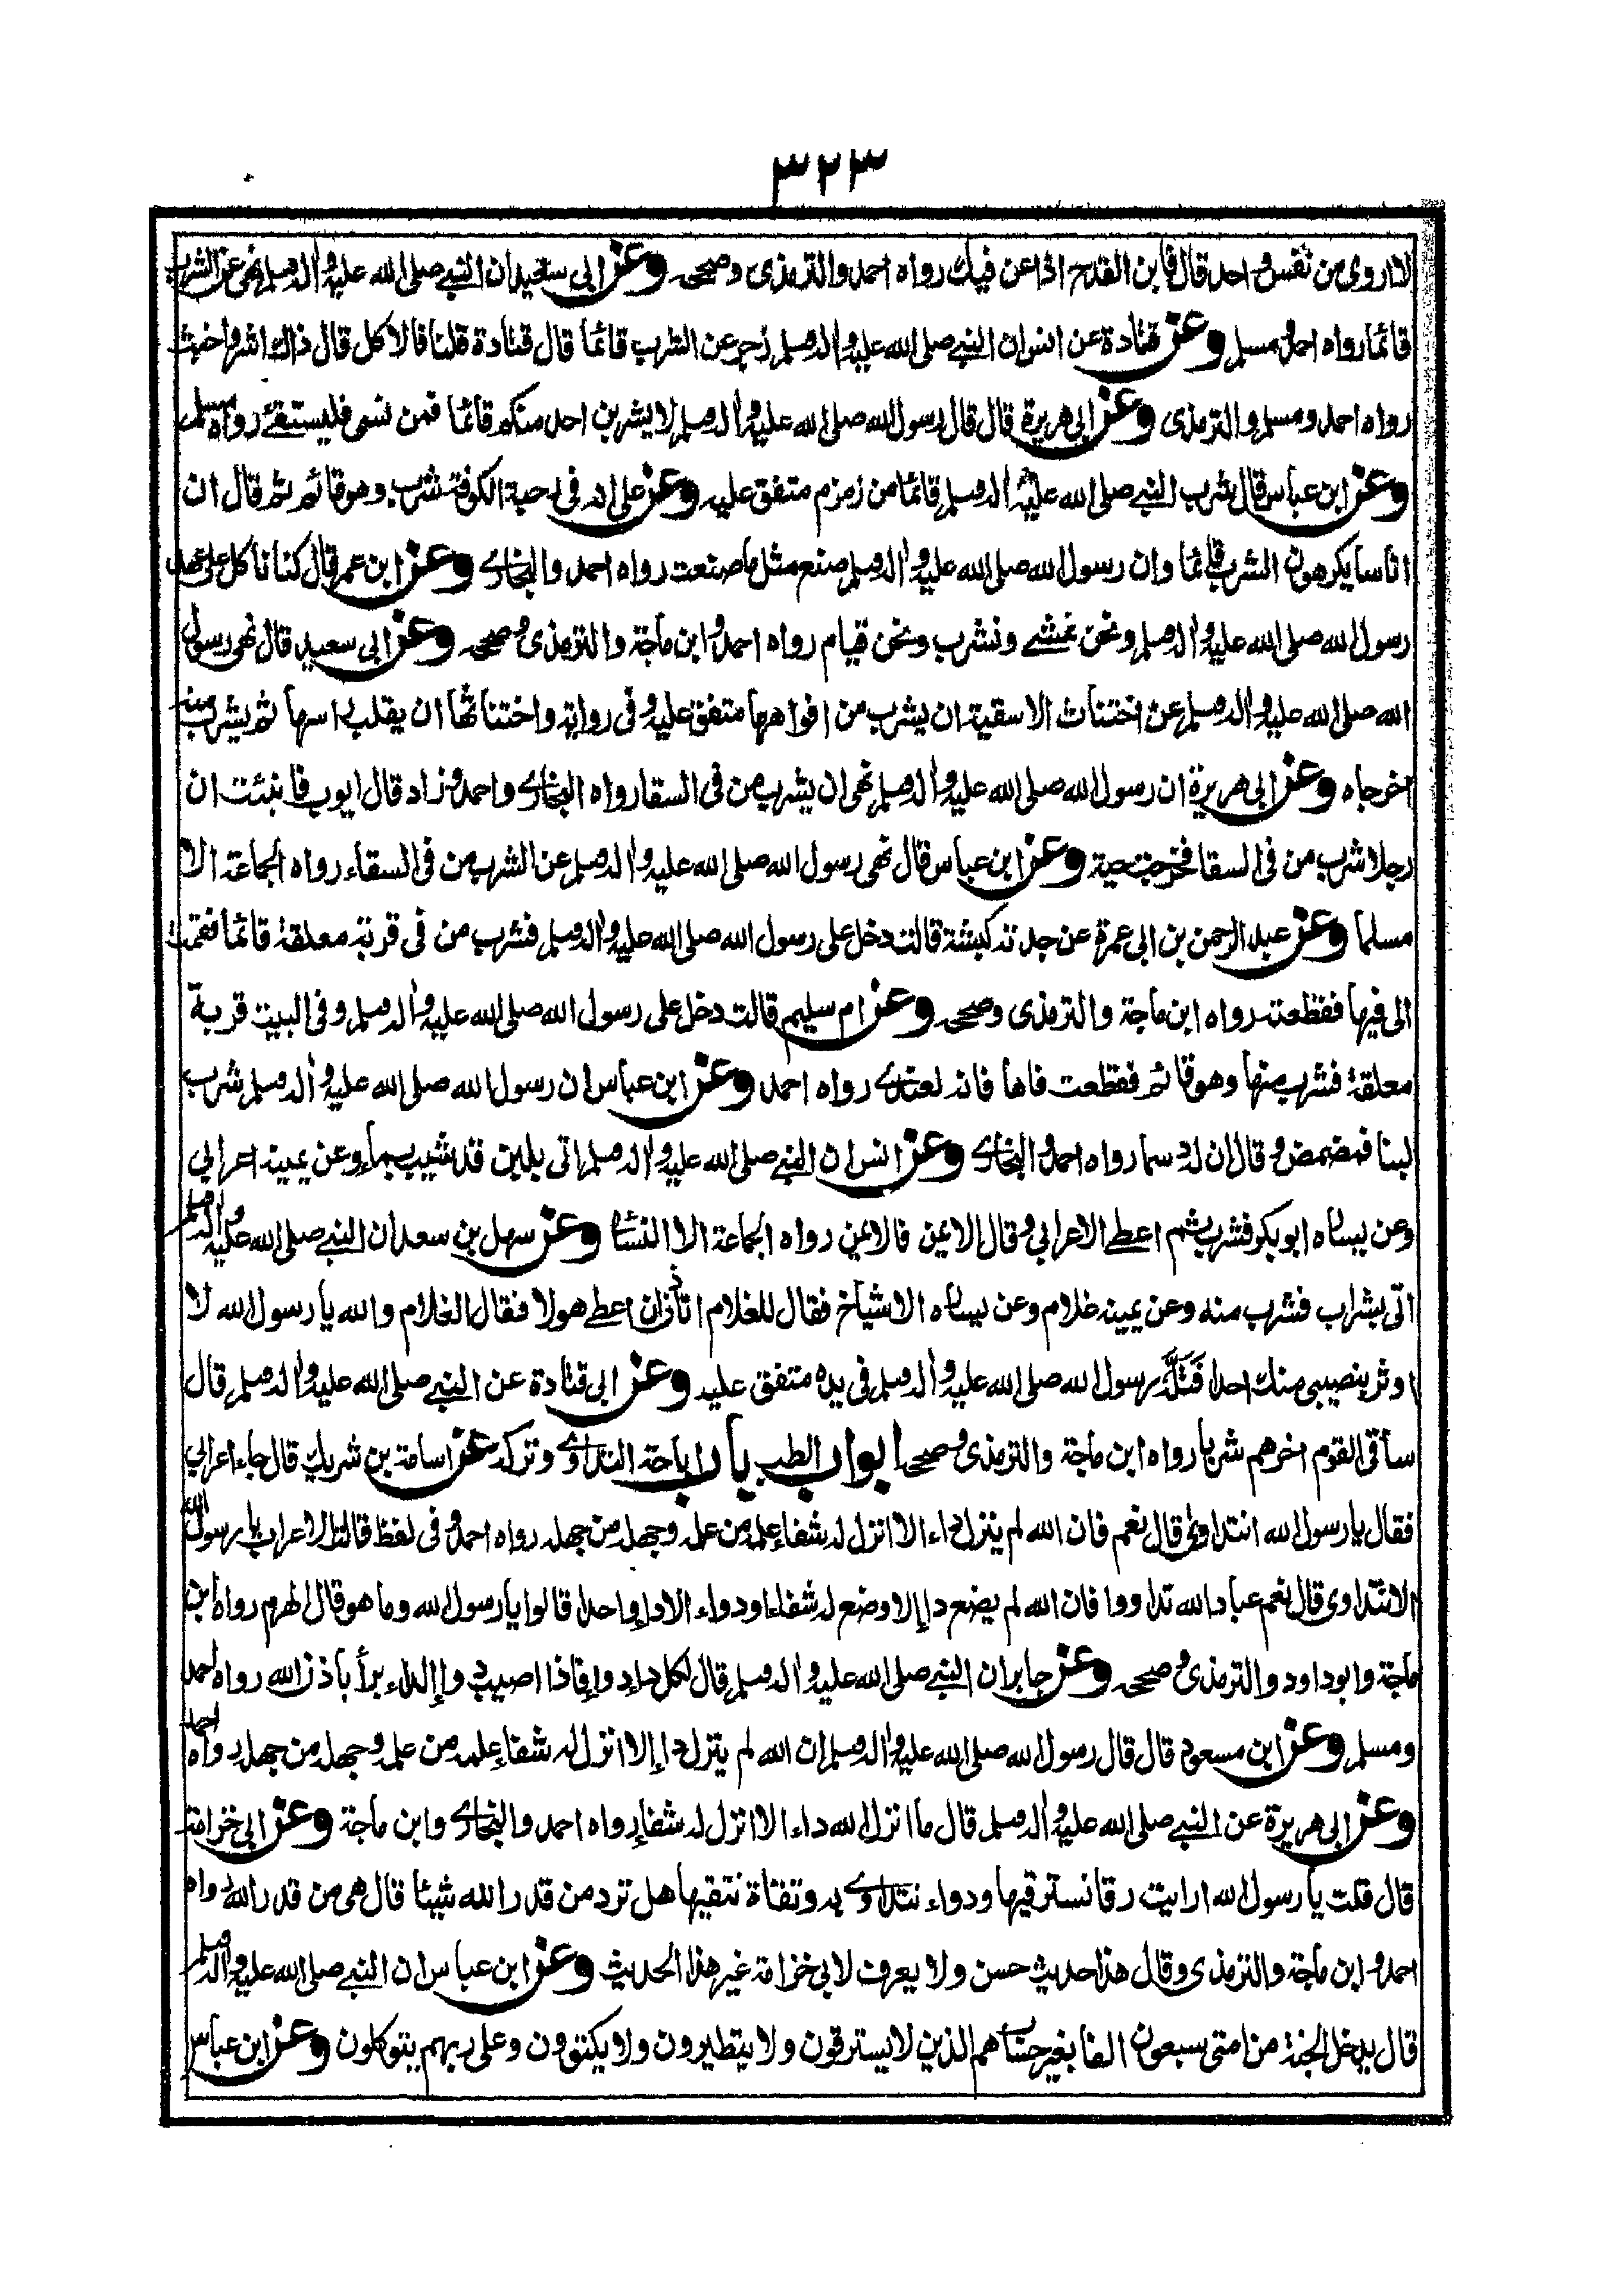 ٣٢٣
لا اروى من نفس واحد قال فابن القدح اذا عن فيك رواه احمد والترمذى وصححه وعن ابى سعيد ان النبى صلى الله عليه واله وسلم نهى عن الشرب
قائما رواه احمد ومسلم وعن قتادة عن انس ان النبى صلى الله عليه واله وسلم زجر عن الشرب قائما قال قتادة قلنا فالاكل قال ذاك اشر واخبث
رواه احمد ومسلم والترمذى وعن ابى هريرة قال قال رسول الله صلى الله عليه واله وسلم لا يشربن احد منكم قائما فمن نسى فليستقئ رواه مسلم
وعن ابن عباس قال شرب النبى صلى الله عليه واله وسلم قائما من زمزم متفق عليه وعن على انه فى رحبة الكوفة شرب وهو قائم ثم قال ان
اناسا يكرهون الشرب قائما وان رسول الله صلى الله عليه واله وسلم صنع مثل ما صنعت رواه احمد والبخارى وعن ابن عمر قال كنا ناكل على عهد
رسول الله صلى الله عليه واله وسلم ونحن نمشى ونشرب ونحن قيام رواه احمد وابن ماجة والترمذى وصححه وعن ابى سعيد قال نهى رسول
الله صلى الله عليه واله وسلم عن اختناث الاسقية ان يشرب من افواهها متفق عليه وفى رواية واختناثها ان يقلب راسها ثم يشرب منه
اخرجاه وعن ابى هريرة ان رسول الله صلى الله عليه واله وسلم نهى ان يشرب من فى السقا رواه البخارى واحمد وزاد قال ايوب فانبئت ان
رجلا شرب من فى السقا فخرجت حية وعن ابن عباس قال نهى رسول الله صلى الله عليه واله وسلم عن الشرب من فى السقاء رواه الجماعة الا
مسلما وعن عبد الرحمن بن ابى عمرة عن جدته كبشة قالت دخل على رسول الله صلى الله عليه واله وسلم فشرب من فى قربة معلقة قائما فقمت
الى فيها فقطعته رواه ابن ماجة والترمذى وصححه وعن ام سليم قالت دخل على رسول الله صلى الله عليه واله وسلم وفى البيت قربة
معلقة فشرب منها وهو قائم فقطعت فاها فانه لعندى رواه احمد وعن ابن عباس ان رسول الله صلى الله عليه واله وسلم شرب
لبنا فمضمض وقال ان له دسما رواه احمد والبخارى وعن انس ان النبى صلى الله عليه واله وسلم اتى بلبن قد شيب بماء وعن يمينه اعرابى
وعن يساره ابو بكر فشرب ثم اعطى الاعرابى وقال الايمن فالايمن رواه الجماعة الا النسائى وعن سهل بن سعد ان النبى صلى الله عليه واله وسلم
اتى بشراب فشرب منه وعن يمينه غلام وعن يساره الاشياخ فقال للغلام اتأذن ان اعطى هولا فقال الغلام والله يا رسول الله لا
اوثر بنصيبى منك احدا فَتَلَّه رسول الله صلى الله عليه واله وسلم فى يده متفق عليه وعن ابى قتادة عن النبى صلى الله عليه واله وسلم قال
ساقى القوم اخرهم شربا رواه ابن ماجة والترمذى وصححه ابواب الطب باب اباحة التداوى وتركه عن اسامة بن شريك قال جاء اعرابى
فقال يا رسول الله انتداوى قال نعم فان الله لم ينزل داء الا انزل له شفاء علمه من علمه وجهله من جهله رواه احمد وفى لفظ قالت الاعراب يا رسول الله
الا نتداوى قال نعم عباد الله تداووا فان الله لم يضع داء الا وضع له شفاء او دواء الا داء واحدا قالوا يا رسول الله وما هو قال الهرم رواه ابن
ماجة وابو داود والترمذى وصححه وعن جابر ان النبى صلى الله عليه واله وسلم قال لكل داء دواء فاذا اصيب دواء الداء برأ باذن الله رواه احمد
ومسلم وعن ابن مسعود قال قال رسول الله صلى الله عليه واله وسلم ان الله لم ينزل داء الا انزل له شفاء علمه من علمه وجهله من جهله رواه احمد
وعن ابى هريرة عن النبى صلى الله عليه واله وسلم قال ما انزل الله داء الا انزل له شفاء رواه احمد والبخارى وابن ماجة وعن ابى خزامة
قال قلت يا رسول الله ارايت رقا نسترقيها ودواء نتداوى به وتقاة نتقيها هل ترد من قدر الله شيئا قال هى من قدر الله رواه
احمد وابن ماجة والترمذى وقال هذا حديث حسن ولا يعرف لابى خزامة غير هذا الحديث وعن ابن عباس ان النبى صلى الله عليه واله وسلم
قال يدخل الجنة من امتى سبعون الفا بغير حساب هم الذين لا يسترقون ولا يتطيرون ولا يكتوون وعلى ربهم يتوكلون وعن ابن عباس